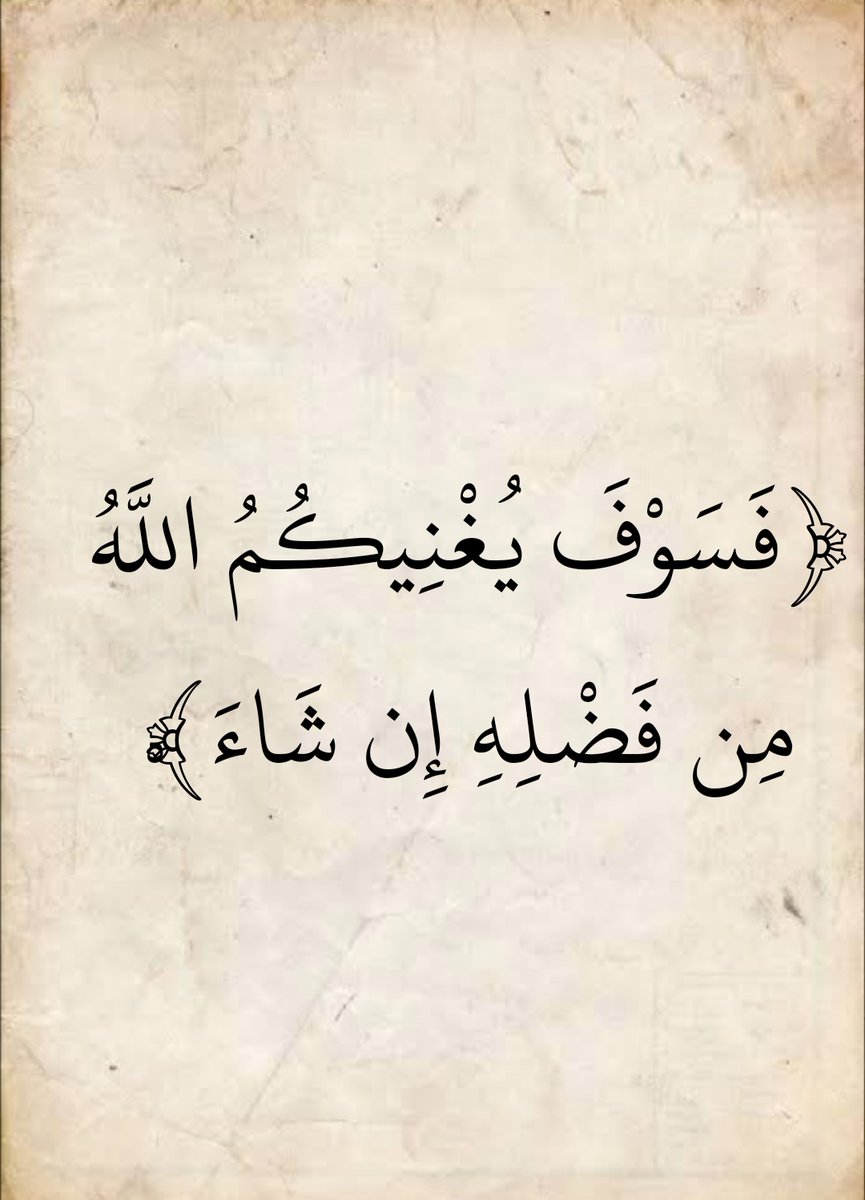 ﴿فَسَوْفَ يُغْنِيكُمُ اللَّهُ
مِن فَضْلِهِ إِن شَاءَ﴾